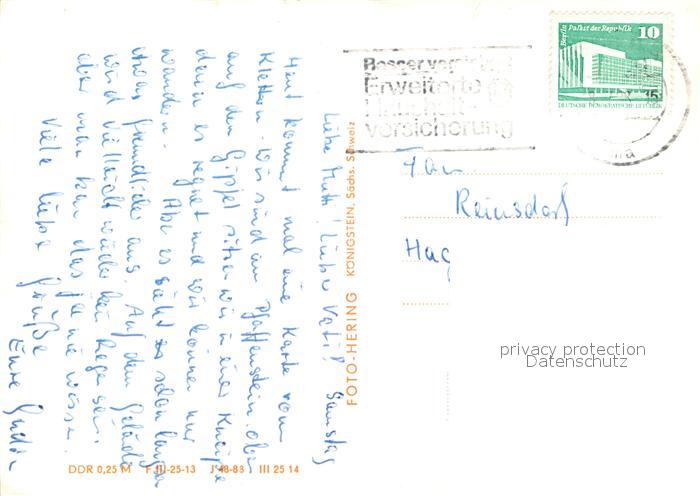 Liebe Mutti! Lieber Vati! Samstag
Heut kommt mal eine Karte vom
Klettern. Wir sind am Pfaffenstein. Oben
auf den Gipfel sitzen wir in einer Kneipe
denn es regnet und wir können nur
wandern. Aber es sieht schon langsam
etwas freundlicher aus. Auf dem Gelände
wird vielleicht wieder kein Regen sein.
aber man kann das ja nie wissen.
Viele liebe Grüße
Eure
FOTO-HERING KÖNIGSTEIN, Sächs. Schweiz
DDR 0,25 M F III-25-13 J 48-83 III 25 14
Besser versichert
Erweiterte
Haushalt-
versicherung
Berlin Palast der Republik 10
DEUTSCHE DEMOKRATISCHE REPUBLIK
Fam
Reinsdorf
Hag
privacy protection
Datenschutz